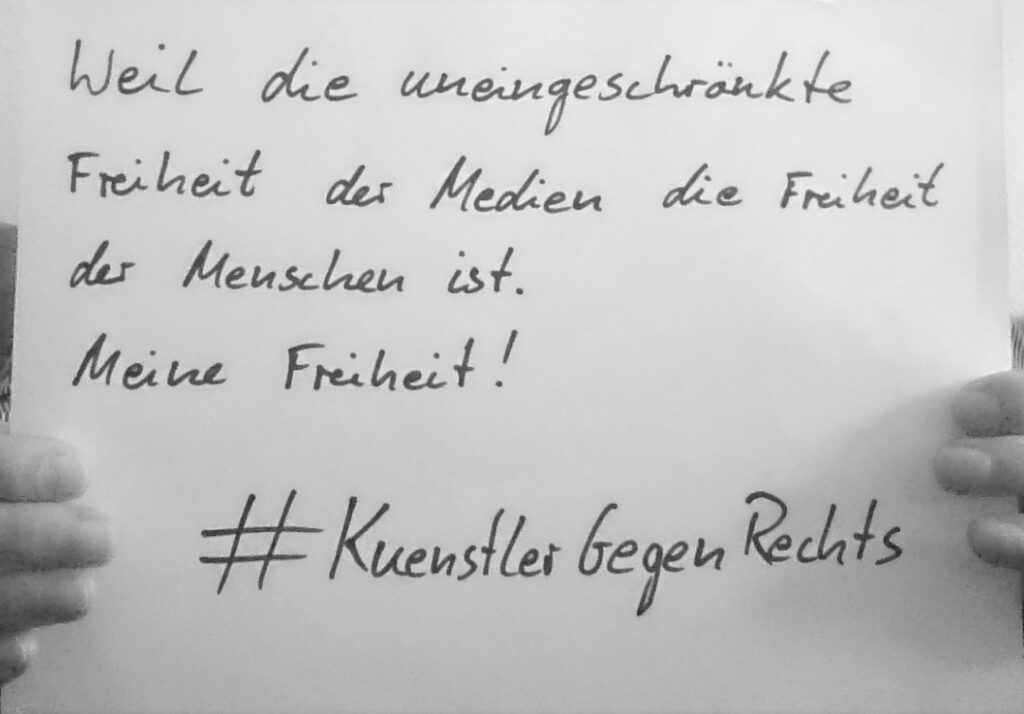 Weil die uneingeschränkte
Freiheit der Medien die Freiheit
der Menschen ist.
Meine Freiheit!
#KuenstlerGegenRechts